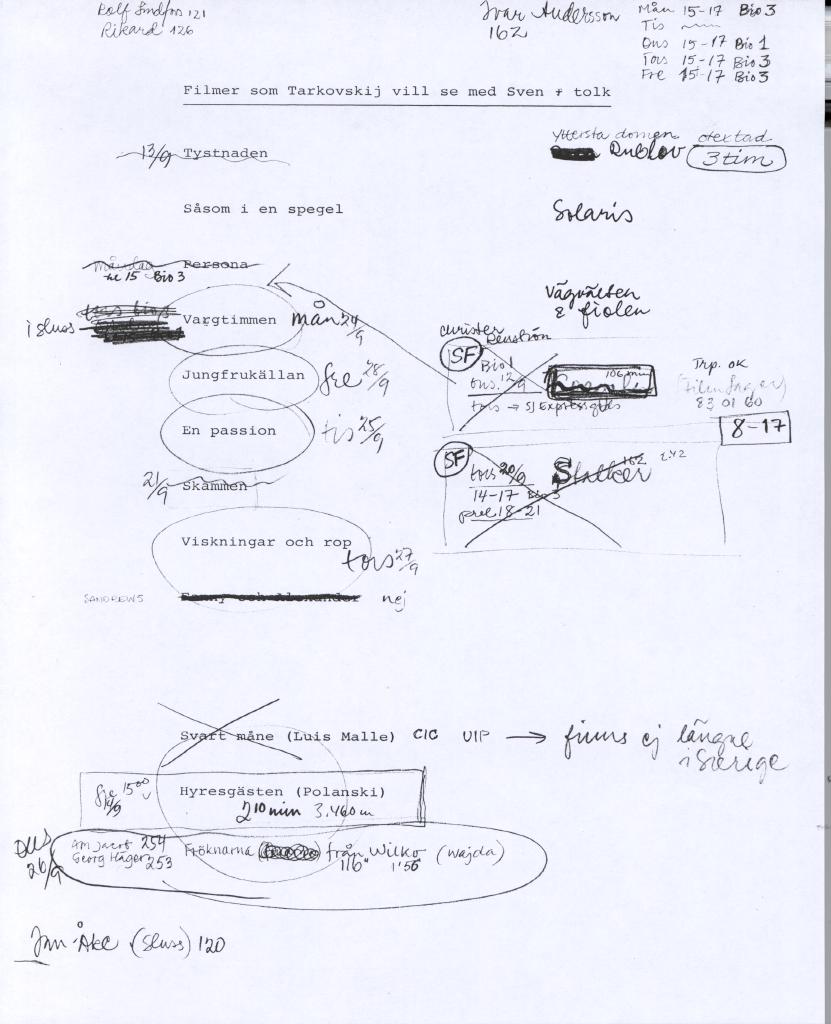 Rolf Lindfors 121
Rikard 126
Ivar Andersson
162
Mån 15-17 Bio 3
Tis
Ons 15-17 Bio 1
Tors 15-17 Bio 3
Fre 15-17 Bio 3
Filmer som Tarkovskij vill se med Sven + tolk
13/9 Tystnaden
Yttersta domen otextad
Rublov 3 tim
Såsom i en spegel
Solaris
Persona
måndag
kl 15 Bio 3
Vägvälten
& fiolen
i sluss
Vargtimmen mån 24/9
christer
SF
Bio 1
ons. 12/9
106 min
tors → SJ Expressgods
Trp. ok
83 01 60
Jungfrukällan fre 28/9
8-17
En passion tis 25/9
SF
tors 20/9 Stalker 162 2.42
14-17 Bio 3
prel 18-21
21/9 Skammen
Viskningar och rop
tors 27/9
SANDREWS Fanny och Alexander nej
Svart måne (Luis Malle) CIC UIP → finns ej längre
i Sverige
fre 15.00
14/9
Hyresgästen (Polanski)
210 min 3.460 m
Ons
26/9
AM Jacob 254
Georg Häger 253
Fröknarna från Wilko (Wajda)
116" 1'56
Jan Åke (Sluss) 120